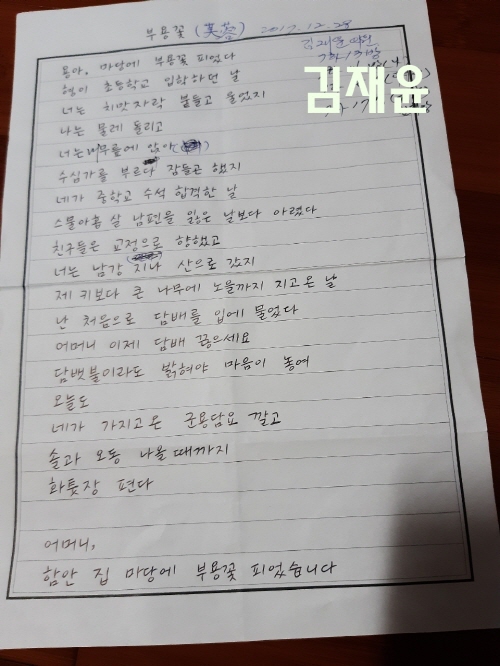 부용꽃 (芙蓉) 2017.12.29
김재윤
용아, 마당에 부용꽃 피었다
형이 초등학교 입학하던 날
너는 치맛자락 붙들고 울었지
나는 물레 돌리고
너는 무릎에 앉아
수심가를 부르다 잠들곤 했지
네가 중학교 수석 합격한 날
스물아홉 살 남편을 잃은 날보다 아렸다
친구들은 교정으로 향했고
너는 남강 지나 산으로 갔지
제 키보다 큰 나무에 노을까지 지고 온 날
난 처음으로 담배를 입에 물었다
어머니 이제 담배 끊으세요
담뱃불이라도 밝혀야 마음이 놓여
오늘도
네가 가지고 온 군용담요 깔고
솔과 오동 나올 때까지
화톳장 편다
어머니,
함안 집 마당에 부용꽃 피었습니다